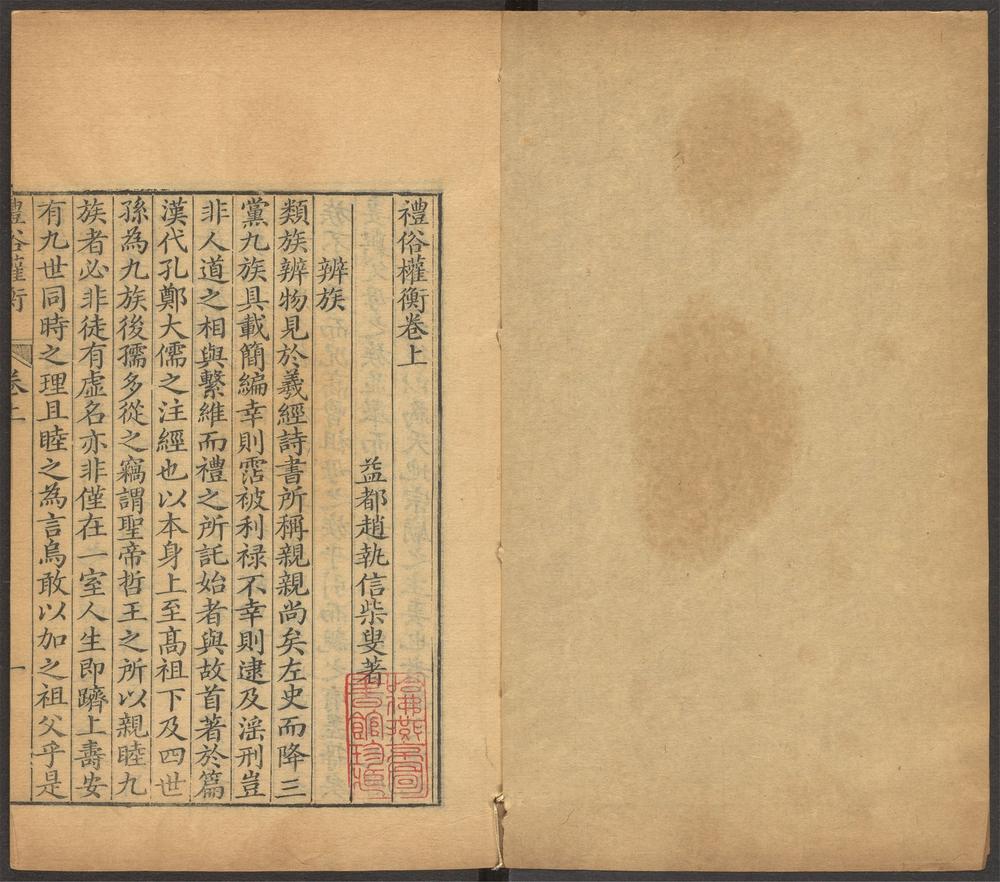 禮俗權衡卷上
益都趙執信柴叟著
辨族
類族辨物見於羲經詩書所稱親親尚矣左史而降三
黨九族具載簡編幸則霑被利祿不幸則逮及淫刑豈
非人道之相與繫維而禮之所託始者與故首著於篇
漢代孔鄭大儒之注經也以本身上至高祖下及四世
孫為九族後孺多從之竊謂聖帝哲王之所以親睦九
族者必非徒有虛名亦非僅在一室人生即躋上壽安
有九世同時之理且睦之為言烏敢以加之祖父乎是
禮俗權衡
卷上
一